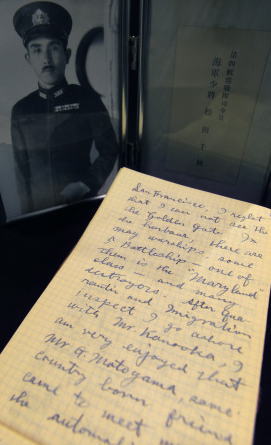 海軍少将
San Francisco. I right
that I can not see the
the Golden Gate. In
the harbour there are
may warships, some
5 Battleship — one of
them is the "Maryland"
class — and many
destroyers. After Qua
rantin and Imigration
inspect I go ashore
with Mr. Kanaoka. I
am very enjoyed that
Mr G. Motoyama, same
country born friend
came to meet
the automobil